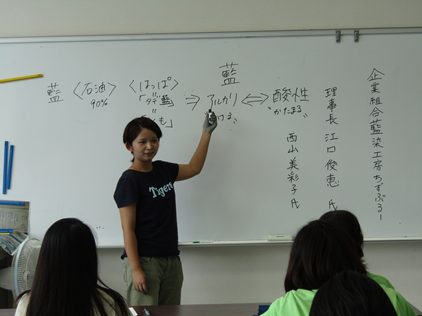 藍
藍 〈石油〉 〈はっぱ〉
90%
「タデ藍」 ⇒ アルカリ ⇔ 酸性
“かたまる”
も」
企業組合藍染工房ちずぶるー
理事長 江口俊恵 氏
西山美彩子氏
Tigers